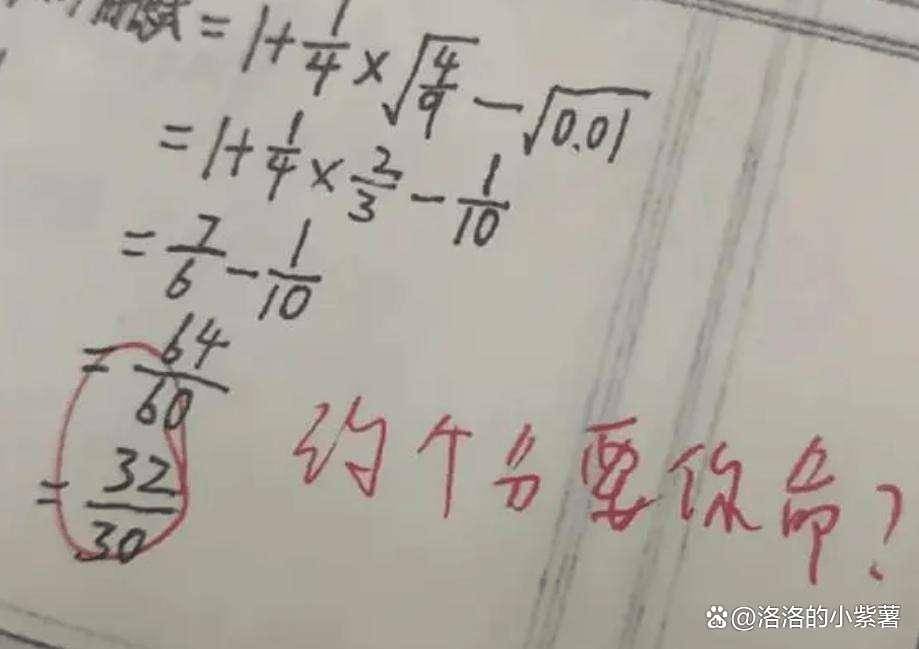 = 1 + 1/4 × √(4/9) − √0.01
= 1 + 1/4 × 2/3 − 1/10
= 7/6 − 1/10
= 64/60
= 32/30
约个分要你命?
@洛洛的小紫薯